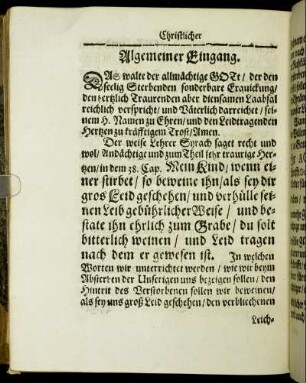 Christlicher
Algemeiner Eingang.
DAs walte der allmächtige GOTt / der den
seelig Sterbenden sonderbare Erquickung /
den hertzlich Traurenden aber diensamen Laabsal
reichlich verspricht / und Väterlich darreichet / sei-
nem H. Namen zu Ehren / und den Leidtragenden
Hertzen zu kräfftigem Trost / Amen.
Der weise Lehrer Syrach saget recht und
wol / Andächtige und zum Theil sehr traurige Her-
tzen / in dem 38. Cap. Mein Kind / wenn ei-
ner stirbet / so beweine ihn / als sey dir
gros Leid geschehen / und verhülle sei-
nen Leib gebührlicher Weise / und be-
state ihn ehrlich zum Grabe / du solt
bitterlich weinen / und Leid tragen
nach dem er gewesen ist. In welchen
Worten wir unterrichtet werden / wie wir beym
Absterben der Unserigen uns bezeigen sollen / den
Hintrit des Verstorbenen sollen wir beweinen /
als sey uns groß Leid geschehen / den verblichenen
Leich-